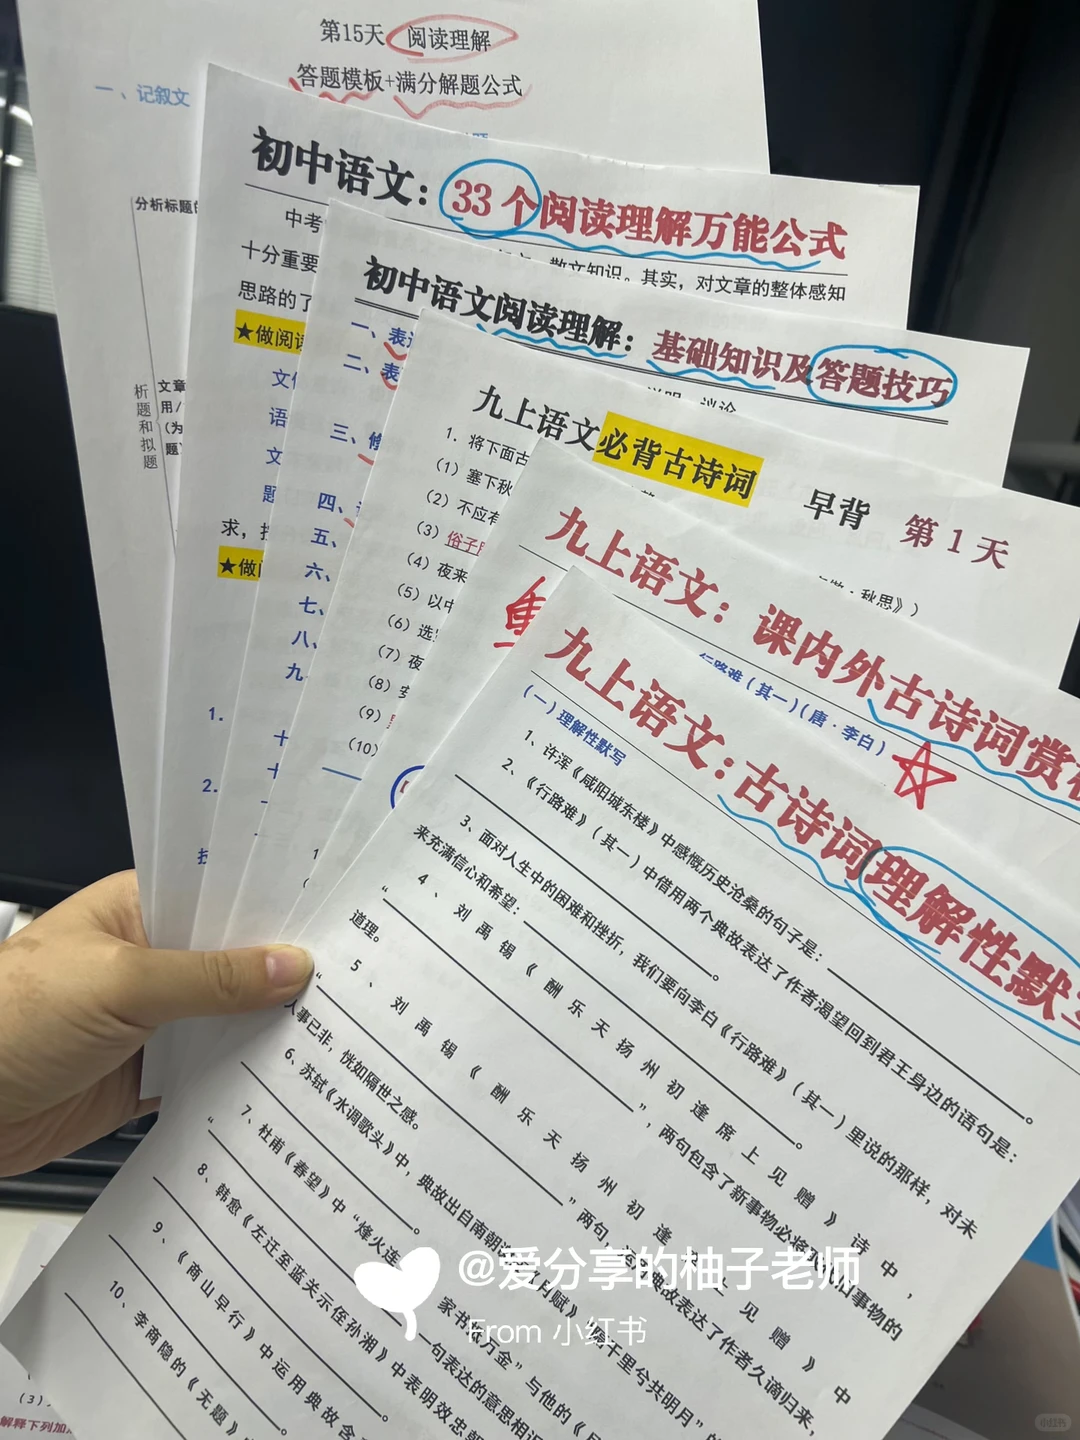 第15天 阅读理解
答题模板+满分解题公式
一、记叙文
分析标题
析题和拟题
文章
用/
(为
题)
初中语文：33个阅读理解万能公式
中考
散文知识。其实，对文章的整体感知
十分重要
思路的了
★做阅读
文
语
文
题
求，
★做
1.
2.
初中语文阅读理解：基础知识及答题技巧
一、表达
二、表
说明、议论
三、修
四、
五、
六、
七、
八、
九
十
十
九上语文必背古诗词 早背 第1天
1. 将下面古
(1) 塞下秋
秋思》)
(2) 不应有
(3) 俗子
(4) 夜来
(5) 以中
(6) 选
(7) 夜
(8)
(9)
(10)
九上语文：课内外古诗词赏
行路难(其一)(唐·李白)
九上语文：古诗词理解性默
(一)理解性默写
1、许浑《咸阳城东楼》中感慨历史沧桑的句子是：
2、《行路难》(其一)中借用两个典故表达了作者渴望回到君王身边的语句是：
3、面对人生中的困难和挫折，我们要向李白《行路难》(其一)里说的那样，对未
来充满信心和希望：
4、刘禹锡《酬乐天扬州初逢席上见赠》诗中，
“ ”，两句包含了新事物必将 旧事物的
道理。
5、刘禹锡《酬乐天扬州初逢席上见赠》中
“ ”两句， 典故表达了作者久谪归来，
人事已非，恍如隔世之感。
6、苏轼《水调歌头》中，典故出自南朝 月赋》“隔千里兮共明月”的
“
7、杜甫《春望》中“烽火连 家书抵万金”与他的《
8、韩愈《左迁至蓝关示侄孙湘》中表明效忠
一句表达的意思相
9、《商山早行》中运用典故含
10、李商隐的《无题》
(3)
解释下列加
@爱分享的柚子老师
From 小红书
小红书